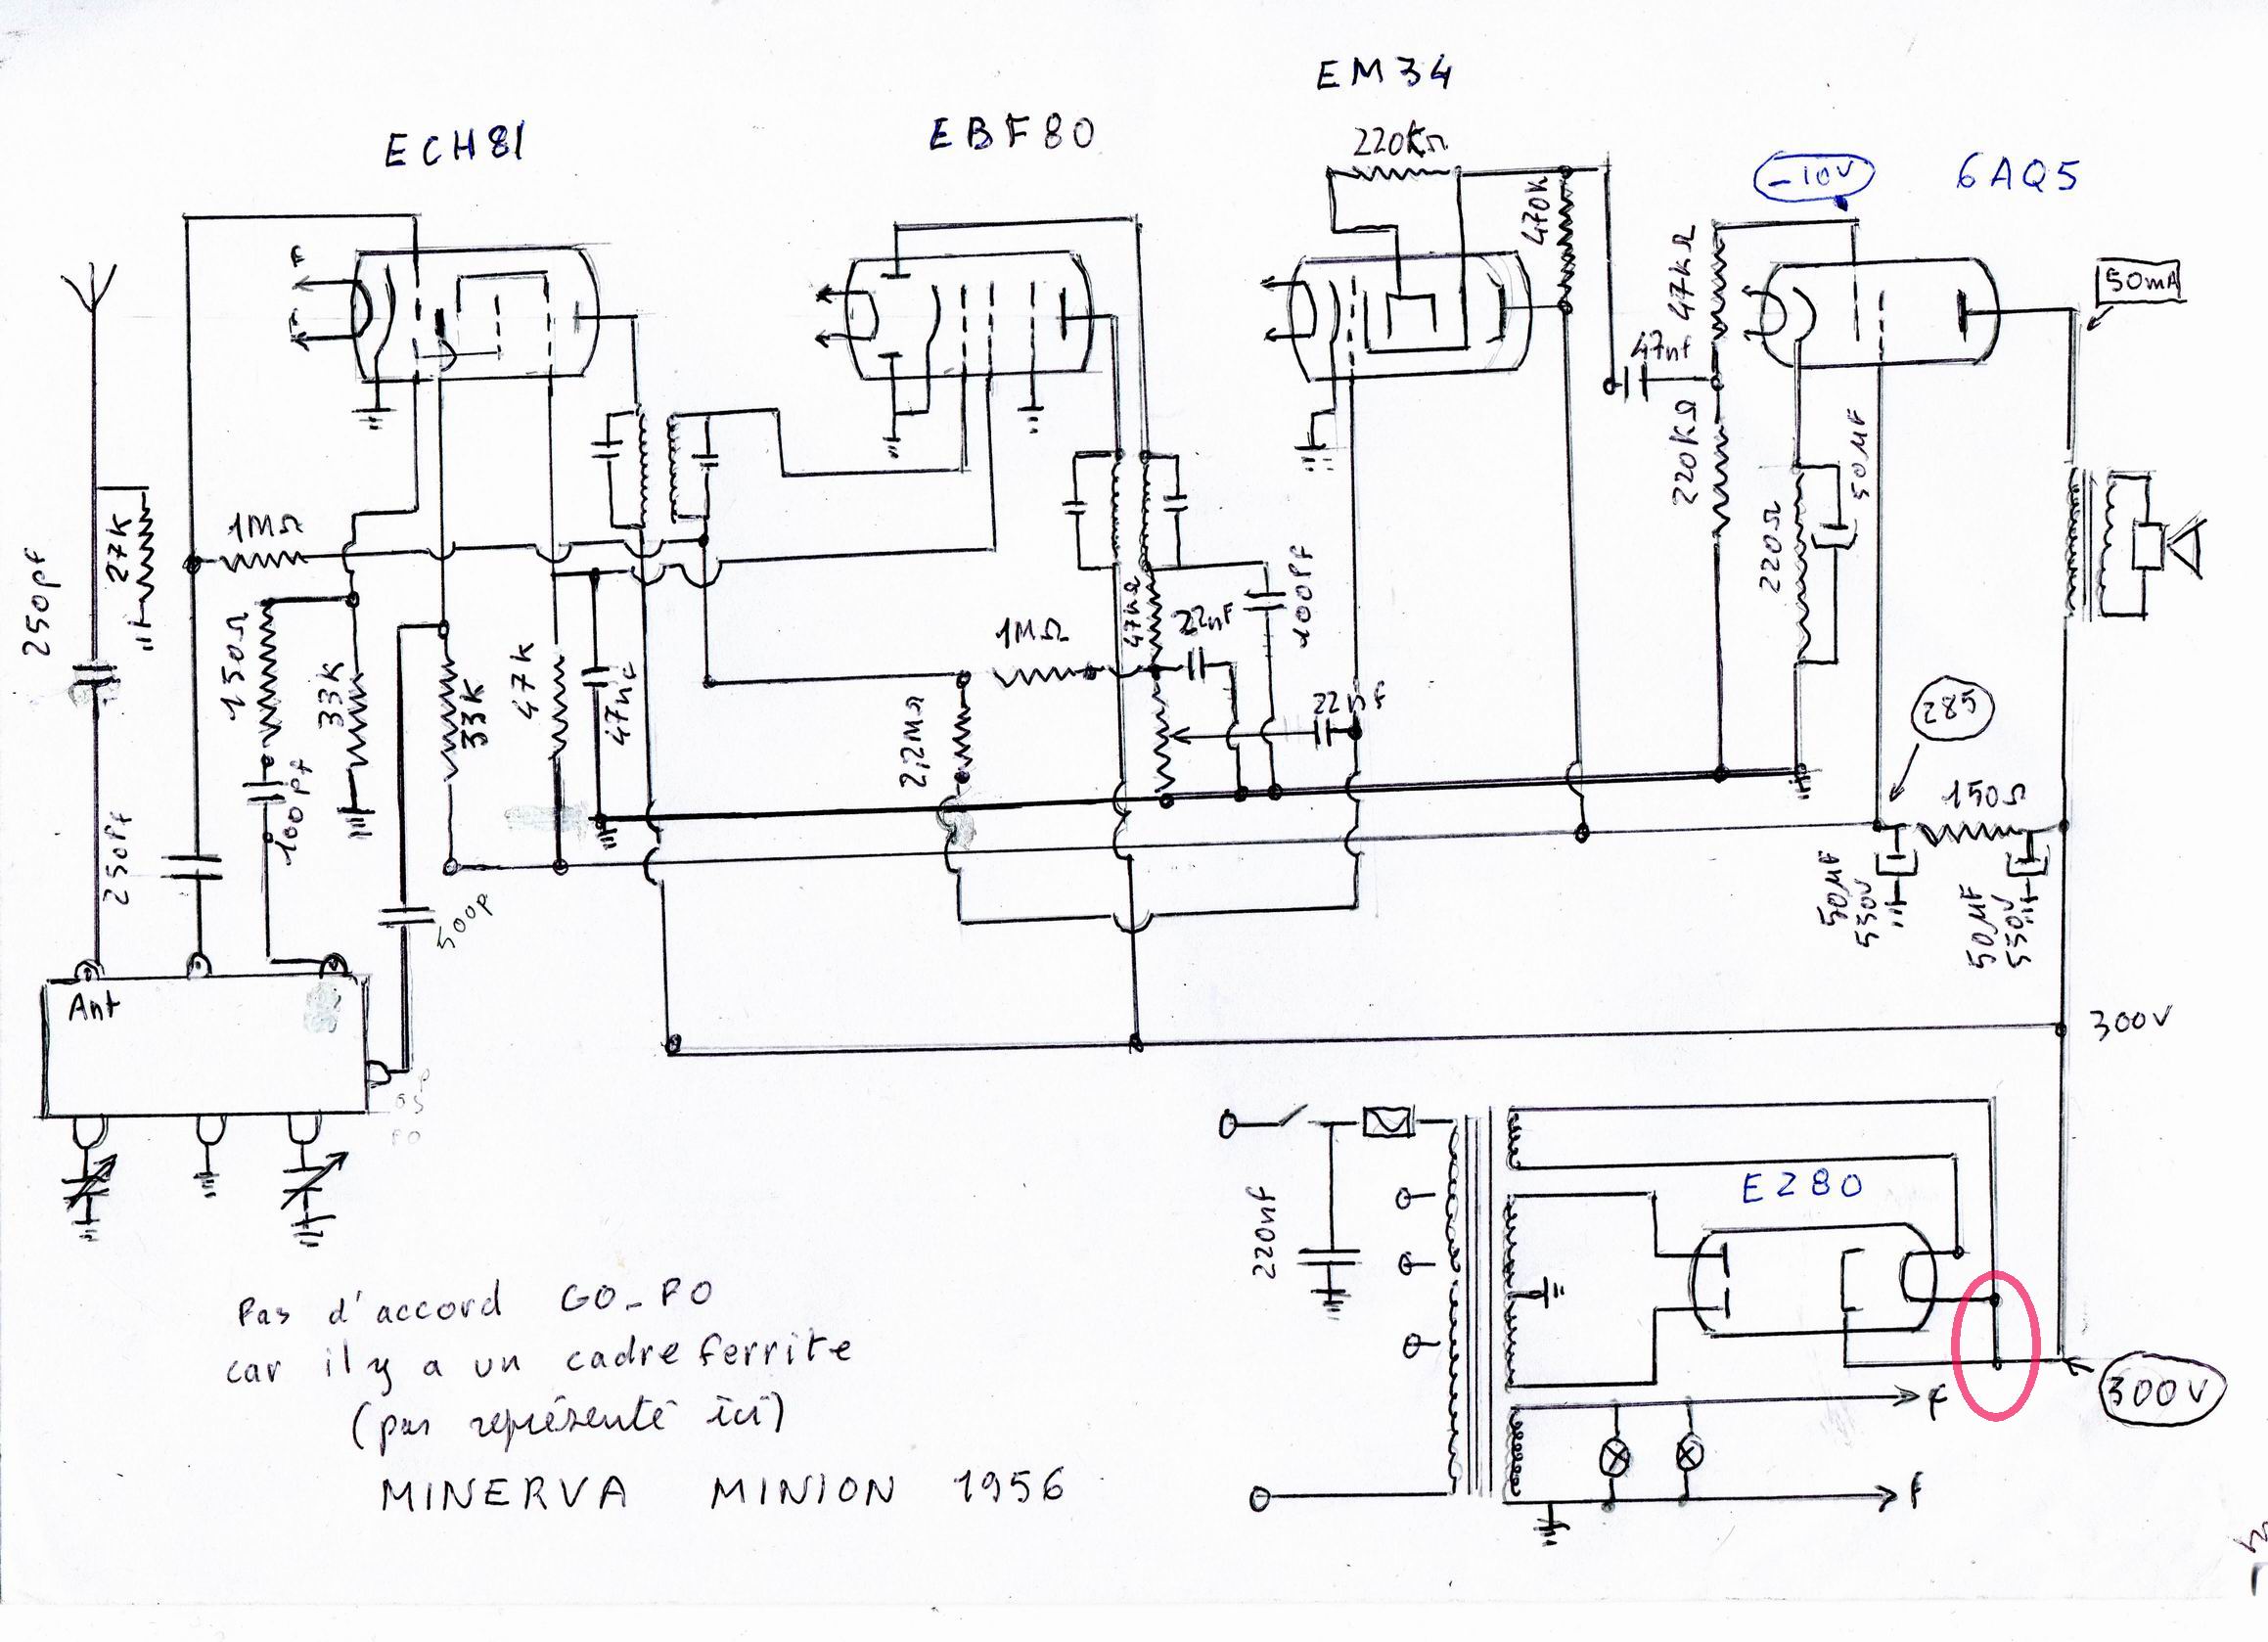 EM34
ECH81
EBF80
220KΩ
-10V
6AQ5
470K
50mA
F
F
47KΩ
47nf
220KΩ
50µF
220Ω
250pf
27K
1MΩ
150Ω
33K
33K
47K
100Pf
250Pf
500p
1MΩ
47KΩ
22nF
100Pf
22nf
2,2MΩ
285
150Ω
50µF
550V
50µF
550V
Ant
PO
300V
220nf
EZ80
300V
f
f
Pas d'accord GO-PO
car il y a un cadre ferrite
(pas représenté ici)
MINERVA MINION 1956